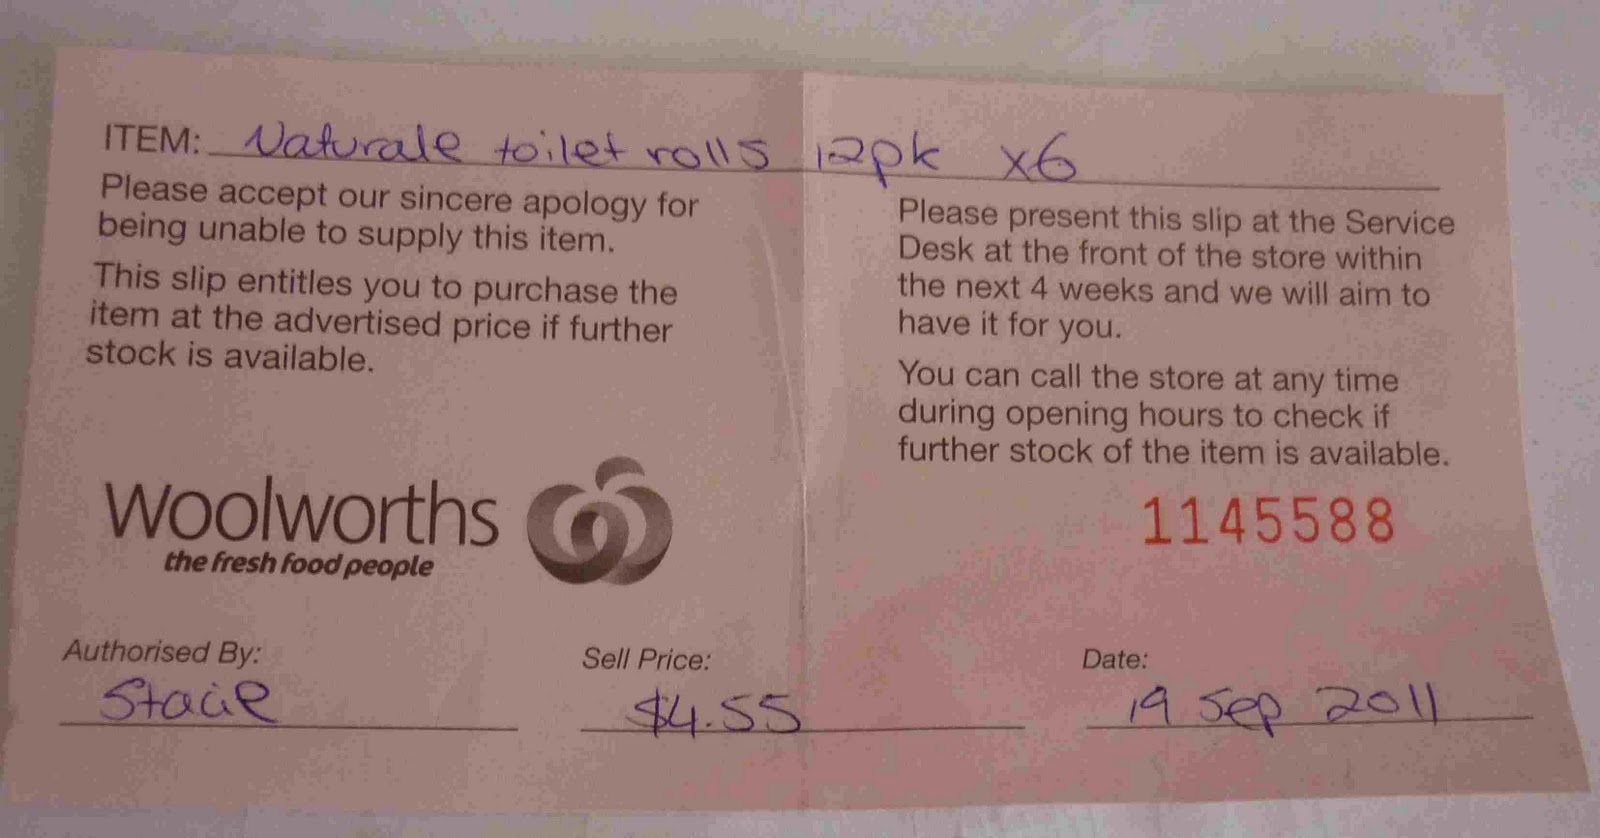 ITEM: Naturale toilet rolls 12pk x6
Please accept our sincere apology for
being unable to supply this item.
This slip entitles you to purchase the
item at the advertised price if further
stock is available.
Please present this slip at the Service
Desk at the front of the store within
the next 4 weeks and we will aim to
have it for you.
You can call the store at any time
during opening hours to check if
further stock of the item is available.
Woolworths
the fresh food people
1145588
Authorised By:
Stacie
Sell Price:
$4.55
Date:
19 Sep 2011